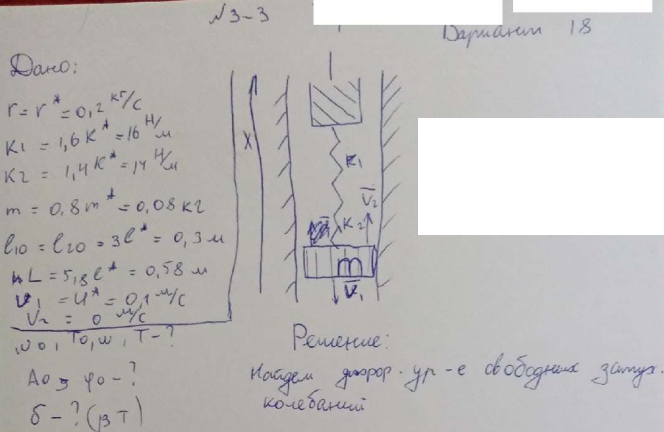 №3-3
Вариант 18
Дано:
r = r* = 0,2 кг/с
K1 = 1,6 K* = 16 Н/м
K2 = 1,4 K* = 14 Н/м
m = 0,8 m* = 0,08 кг
l10 = l20 = 3l* = 0,3 м
L = 5,8 l* = 0,58 м
V1 = U* = 0,1 м/с
V2 = 0 м/с
ω0, T0, ω, T - ?
A0, φ0 - ?
δ - ? (β T)
X
K1
V2
K2
m
V1
Решение:
Найдем диффер. ур-е свободных затух.
колебаний